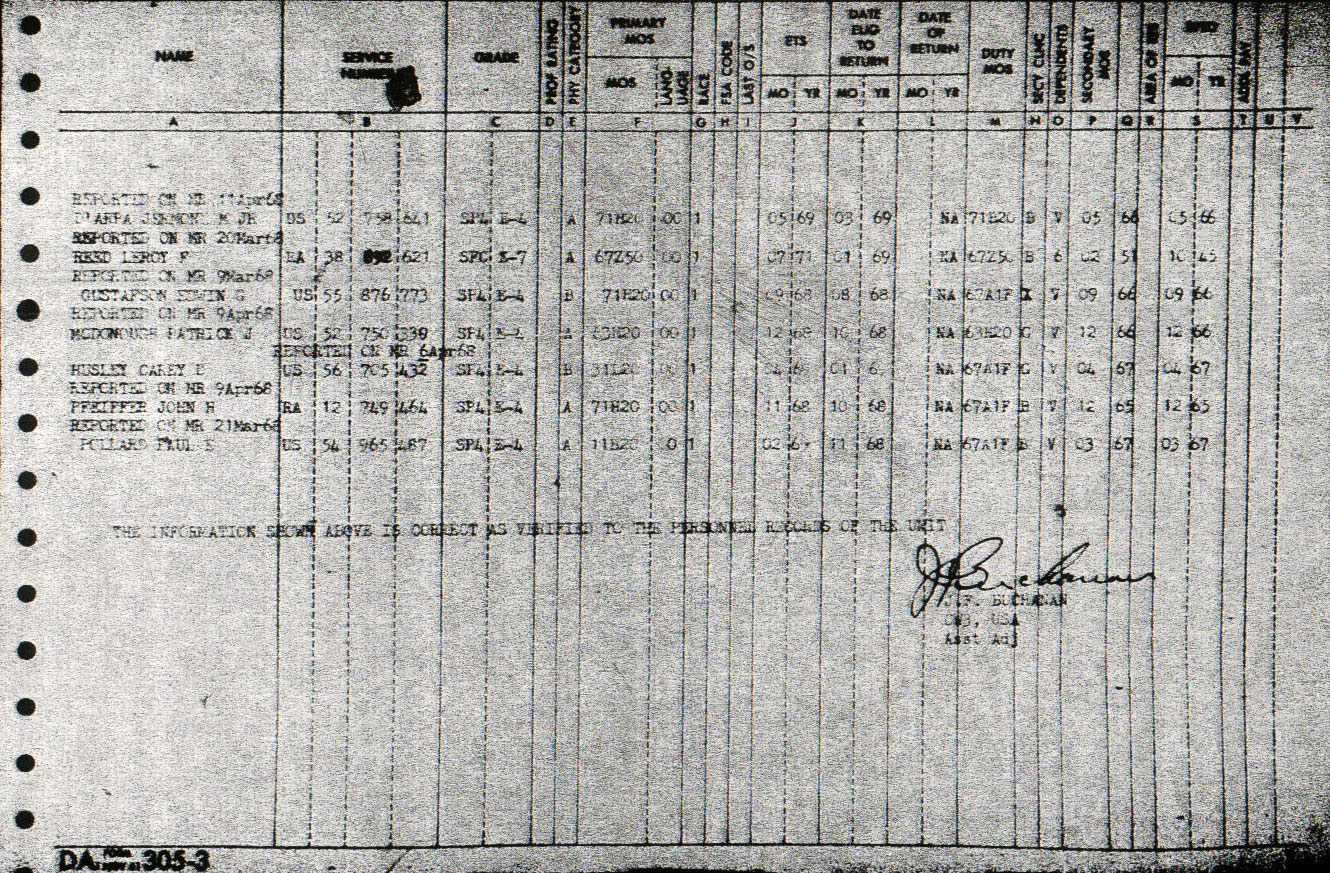 NAME SERVICE NUMBER GRADE PROF RATING PHY CATEGORY PRIMARY MOS MOS LANGUAGE RACE FSA CODE LAST O/S ETS MO YR DATE ELIG TO RETURN MO YR DATE OF RETURN MO YR DUTY MOS SECY CLNC DEPENDENTS SECONDARY MOS MO YR ADDL PAY
A B C D E F G H I J K L M N O P Q R S T U V
REPORTED ON MR 11Apr68
JR US 52 758 641 SP4 E-4 A 71H20 00 1 05 69 03 69 NA 71H20 B V 05 66 05 66
REPORTED ON MR 20Mar68
REED LEROY F RA 38 892 621 SFC E-7 A 67Z50 00 1 07 71 01 69 NA 67Z50 B 6 02 51 10 45
REPORTED ON MR 9Mar68
GUSTAFSON EDWIN G US 55 876 773 SP4 E-4 B 71H20 00 1 09 68 08 68 NA 67A1F X V 09 66 09 66
REPORTED ON MR 9Apr68
MCDONOUGH PATRICK J US 52 750 339 SP4 E-4 A 63H20 00 1 12 68 10 68 NA 63H20 C V 12 66 12 66
REPORTED ON MR 6Apr68
CAREY US 56 705 432 SP4 E-4 B 00 1 04 69 01 NA 67A1F C V 04 67 04 67
REPORTED ON MR 9Apr68
PFEIFFER JOHN H RA 12 749 464 SP4 E-4 A 71H20 00 1 11 68 10 68 NA 67A1F B V 12 65 12 65
REPORTED ON MR 21Mar68
POLLARD PAUL US 54 965 487 SP4 E-4 A 11B20 0 1 02 69 11 68 NA 67A1F B V 03 67 03 67
THE INFORMATION SHOWN ABOVE IS CORRECT AS VERIFIED TO THE PERSONNEL RECORDS OF THE UNIT
J F Buchanan
J.F. BUCHANAN
USA
Asst Adj
DA 305-3